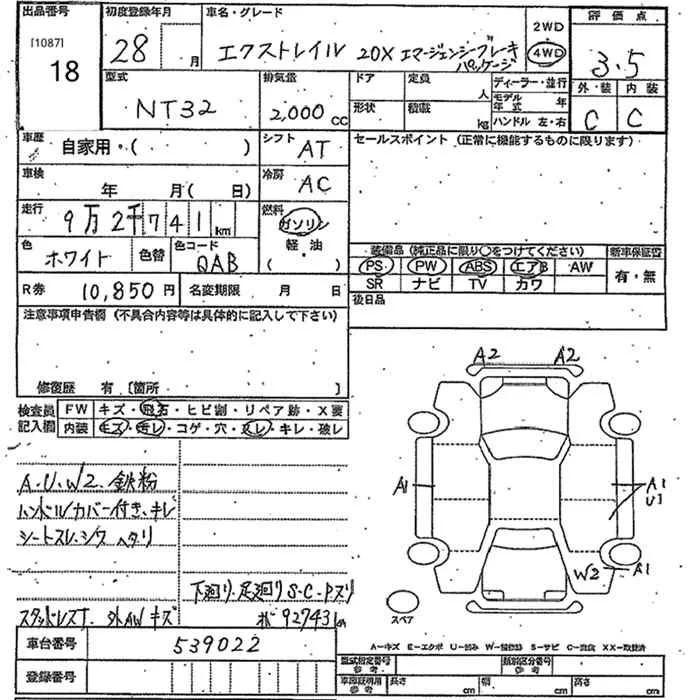 出品番号 初度登録年月 車名・グレード 評価点
[1087]
18
28 月
エクストレイル 20X エマージェンシーブレーキ
パッケージ
2WD
4WD
3.5
型式 排気量 ドア 定員 ディーラー・並行 外・装 内装
NT32 2,000 cc
人
形状 積載 kg
モデル年式 年
ハンドル 左・右
C C
車歴 自家用・( )
シフト AT
セールスポイント (正常に機能するものに限ります)
車検 年 月( 日)
冷房 AC
走行 9万2千741km
燃料 ガソリン
軽・油
( )
色 ホワイト 色替 色コード QAB
装備品 (純正品に限り○をつけてください) 新車保証書
PS PW ABS エアB AW 有・無
SR ナビ TV カワ
R券 10,850円 名変期限 月 日
後日品
注意事項申告欄 (不具合内容等は具体的に記入して下さい)
修復歴 有 [箇所 ]
検査員 FW キズ・飛石・ヒビ割・リペア跡・X要
記入欄 内装 キズ・キレ・コゲ・穴・スレ・キレ・破レ
A2 A2
A1 A1
U1
W2 A1
スペア
A.U.W2.鉄粉
ハンドルカバー付き、キレ
シートスレ、シワ ヘタリ
下廻り.足廻りS-C-Pズリ
スタッドレス寸. 外AWキズ 92743
A-キズ E-エクボ U-凹み W-補修跡 S-サビ C-腐食 XX-交換済
車台番号 539022
登録番号
型式指定番号 参考 類別区分番号 参考
車庫証明用 参考 長さ cm 幅 cm 高さ cm